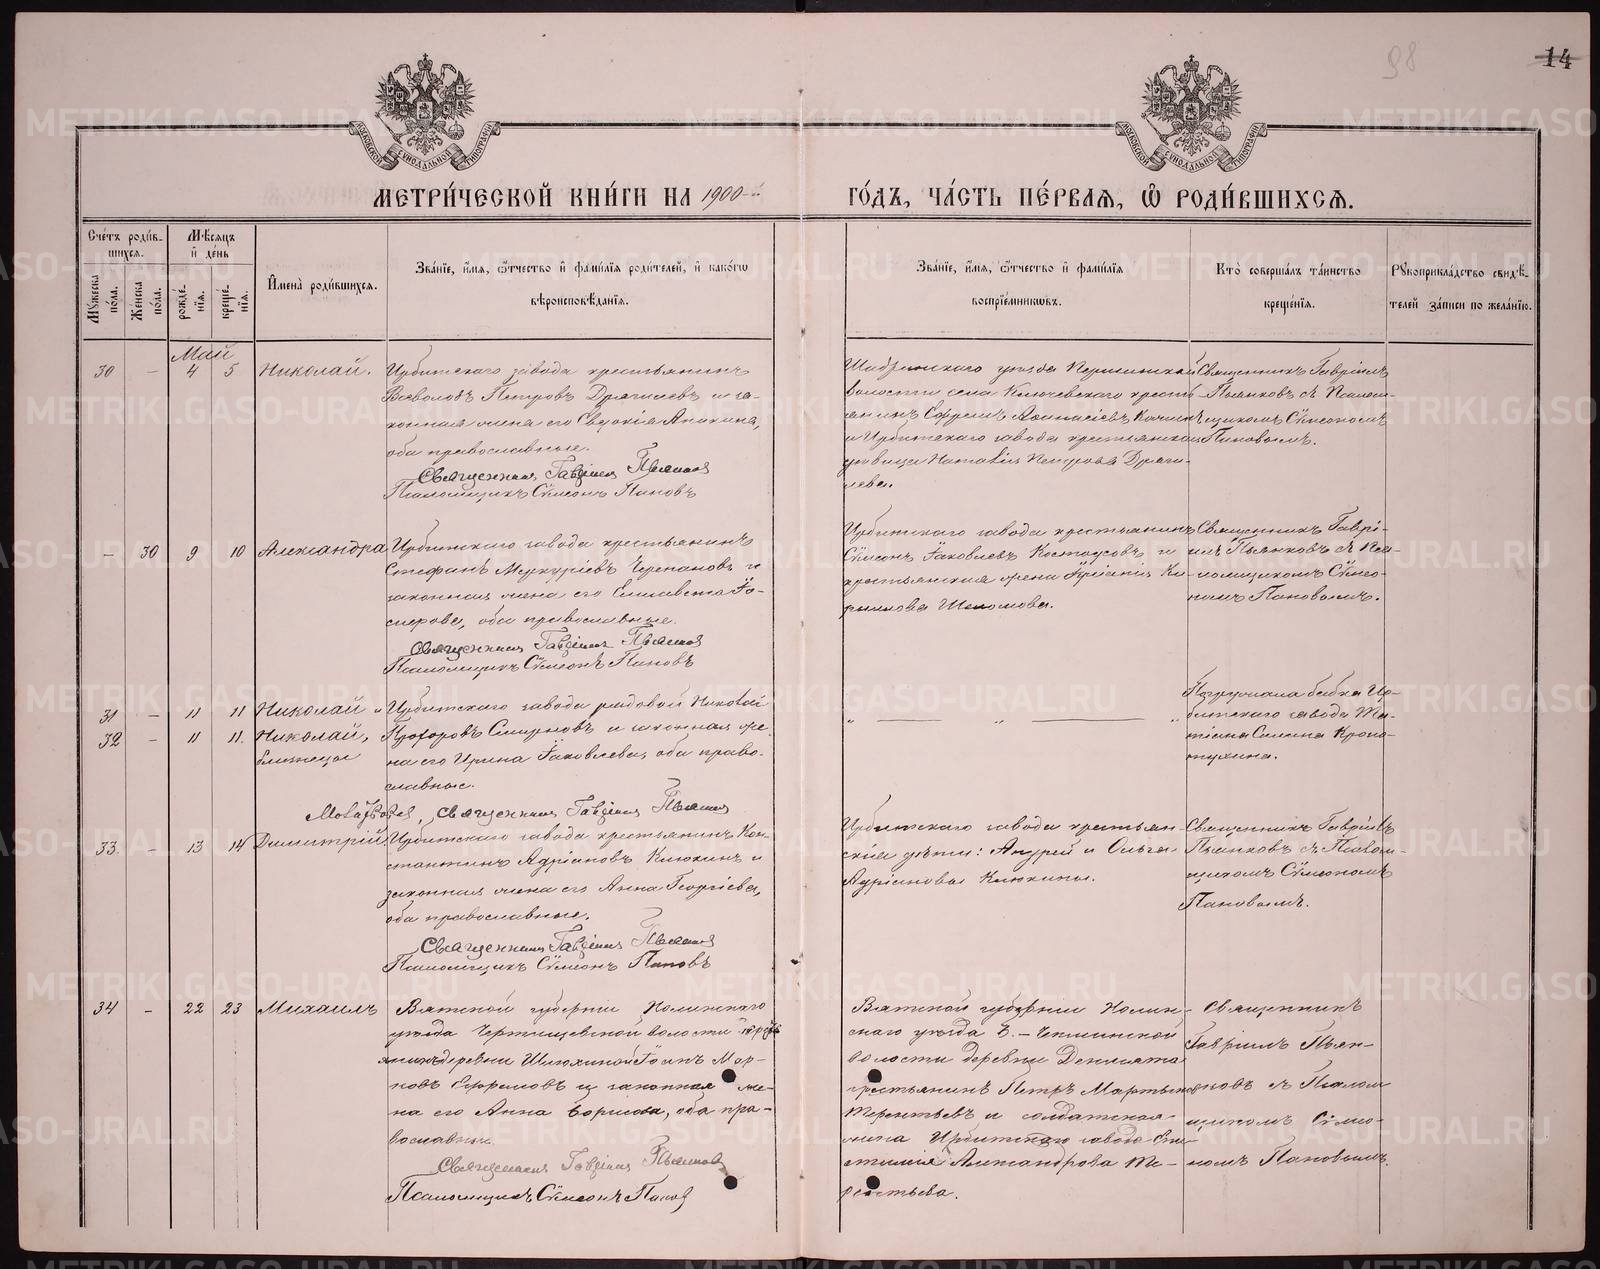 98
14
МЕТРИ́ЧЕСКОЙ КНИ́ГИ НА 1900-й
ГО́ДЪ, ЧА́СТЬ ПЕ́РВАѦ, Ѡ҆ РОДИ́ВШИХСѦ.
Сче́тъ роди́в-
шихсѧ.
Мꙋ́жеска по́ла.
Же́нска по́ла.
Мѣ́сѧцъ и҆ де́нь
рожде́нїѧ.
креще́нїѧ.
И҆мена̀ роди́вшихсѧ.
Зва́нїе, и҆́мѧ, ѻ҆́тчество и҆ фами́лїѧ роди́телей, и҆ како́гѡ
вѣроисповѣ́данїѧ.
Зва́нїе, и҆́мѧ, ѻ҆́тчество и҆ фами́лїѧ
воспрїе́мникѡвъ.
Кто̀ соверша́лъ та́инство
креще́нїѧ.
Рꙋкоприкла́дство свидѣ́-
телей за́писи по жела́нїю.
Май
30 - 4 5 Николай.
Ирбитскаго завода крестьянинъ
Всеволодъ Петровъ Драгилевъ и за-
конная жена его Евдокія
оба православные.
Священникъ Гавріилъ Пьянков
Псаломщикъ Сѵмеонъ Пановъ
Шадринскаго уѣзда
волости села Ключевскаго кресть-
янинъ Ефремъ Аѳанасіевъ
и Ирбитскаго завода крестьянская
дѣвица Наталія Петрова Драги-
лева.
Священникъ Гавріилъ
Пьянковъ съ Псалом-
щикомъ Сѵмеономъ
Пановымъ.
- 30 9 10 Александра
Ирбитскаго завода крестьянинъ
Стефанъ Меркуріевъ Черепановъ и
законная жена его Елисавета
оба православные.
Священникъ Гавріилъ Пьянков
Псаломщикъ Сѵмеонъ Пановъ
Ирбитскаго завода крестьянинъ
Сѵмеонъ Іаковлевъ Костоусовъ и
крестьянская жена Ки-
риллова Шеломова.
Священникъ Гаврі-
илъ Пьянковъ съ Пса-
ломщикомъ Сѵмео-
номъ Пановымъ.
31 - 11 11 Николай и
32 - 11 11. Николай,
близнецы
Ирбитскаго завода рядовой Николай
Прохоровъ Смирновъ и законная же-
на его Ирина Іаковлева, оба право-
славные.
Священникъ Гавріилъ Пьянков
Погружала бабка Ир-
битскаго завода Та-
тіана
33. - 13 14 Димитрій
Ирбитскаго завода крестьянинъ Кон-
стантинъ Адріановъ Клюкинъ и
законная жена его Анна Георгіева,
оба православные.
Священникъ Гавріилъ Пьянков
Псаломщикъ Сѵмеонъ Пановъ
Ирбитскаго завода крестьян-
скія дѣти: Андрей и Ольга
Адріановы Клюкины.
Священникъ Гавріилъ
Пьянковъ съ Псалом-
щикомъ Сѵмеономъ
Пановымъ.
34 - 22 23 Михаилъ
Вятской губерніи Нолинскаго
уѣзда волости кресть-
янинъ деревни Іоаннъ Мар-
ковъ Ефремовъ и законная же-
на его Анна Борисова, оба пра-
вославные.
Священникъ Гавріилъ Пьянков
Псаломщикъ Сѵмеонъ Панов
Вятской губерніи Нолин-
скаго уѣзда
волости деревни
крестьянинъ Петръ Мартыновъ
Терентьевъ и солдатская
жена Ирбитскаго завода
Александрова Те-
рентьева.
Священникъ
Гавріилъ Пьян-
ковъ съ Псалом-
щикомъ Сѵмео-
номъ Пановымъ.
METRIKI.GASO-URAL.RU